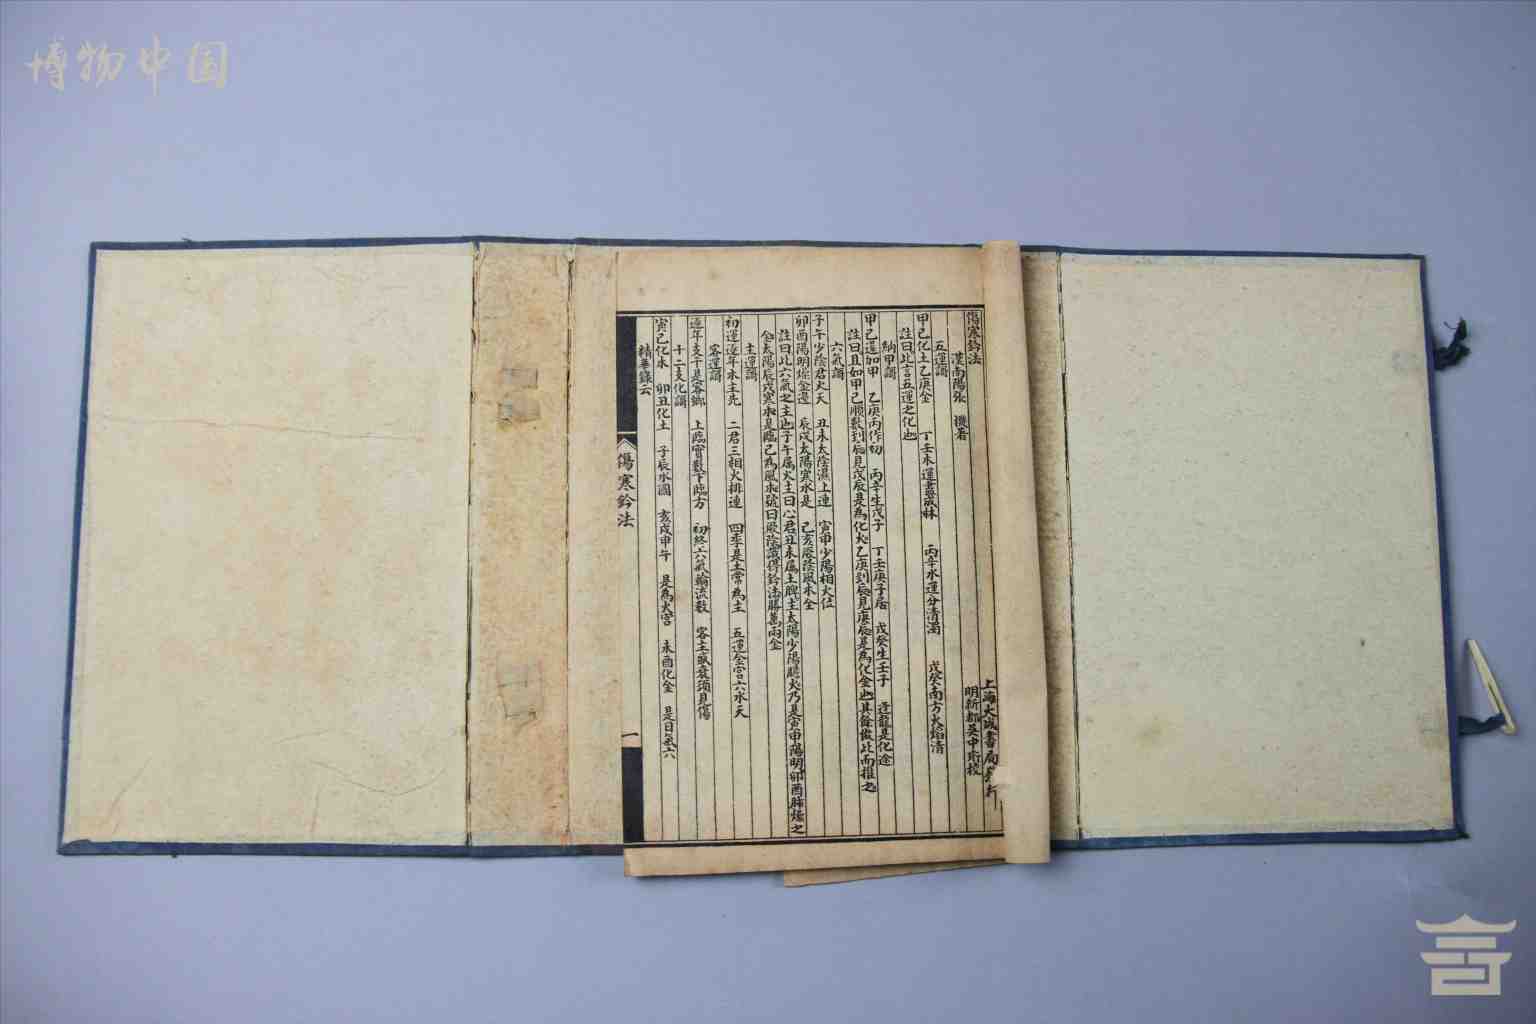 博物中国
傷寒鈐法
漢南陽張　機著
上海大成書局
明新都吳中珩校
五運謌
甲己化土乙庚金　丁壬木運盡成林　丙辛水運分清濁　戊癸南方火焰清
註曰此言五運之化也
納甲謌
甲己還加甲　乙庚丙作初　丙辛生戊子　丁壬庚子居　戊癸生壬子　逢龍是化途
註曰且如甲己順數到辰見戊辰是爲化火乙庚到辰見庚辰是爲化金也其餘倣此而推之
六氣謌
子午少陰君火天　丑未太陰濕上連　寅申少陽相火位
卯酉陽明燥金邊　辰戌太陽寒水是　己亥厥陰風木全
註曰此六氣之主也子午屬火主曰心君丑未屬土脾主太陽少陽膽火乃是寅申陽明卯酉肺燥之
金太陽辰戌寒水是臨己爲風木號曰厥陰識得鈐法勝萬兩金
主運謌
初運逐年木主先　二君三相火排連　四季是土常爲主　五運金宮六水天
客運謌
逐年支干是客鄉　上臨實數下臨方　初終六氣輪流數　客主盛衰須見傷
十二支化謌
寅己化木　卯丑化土　子辰水圖　亥戌申午　是爲火宮　未酉化金　是曰氣六
精華錄云
傷寒鈐法
一